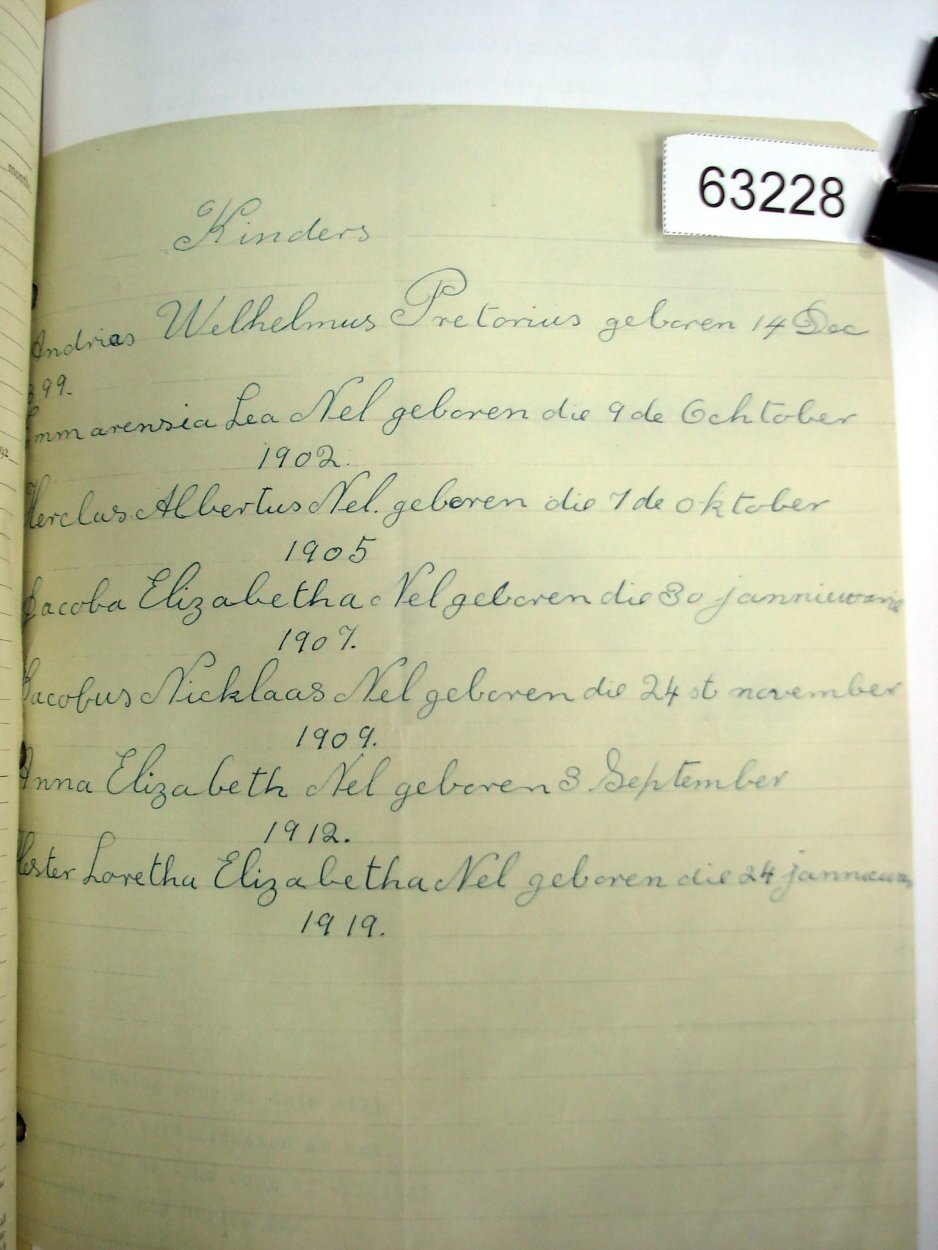 63228
Kinders
Andries Welhelmus Pretorius geboren 14 Dec
99.
Emmarensia Lea Nel geboren die 9de Ochtober
1902.
Herclas Albertus Nel. geboren die 7de oktober
1905
Jacoba Elizabetha Nel geboren die 30 janniewarie
1907.
Jacobus Nicklaas Nel geboren die 24st november
1909.
Anna Elizabeth Nel geboren 3 September
1912.
Hester Loretha Elizabetha Nel geboren die 24
1919.